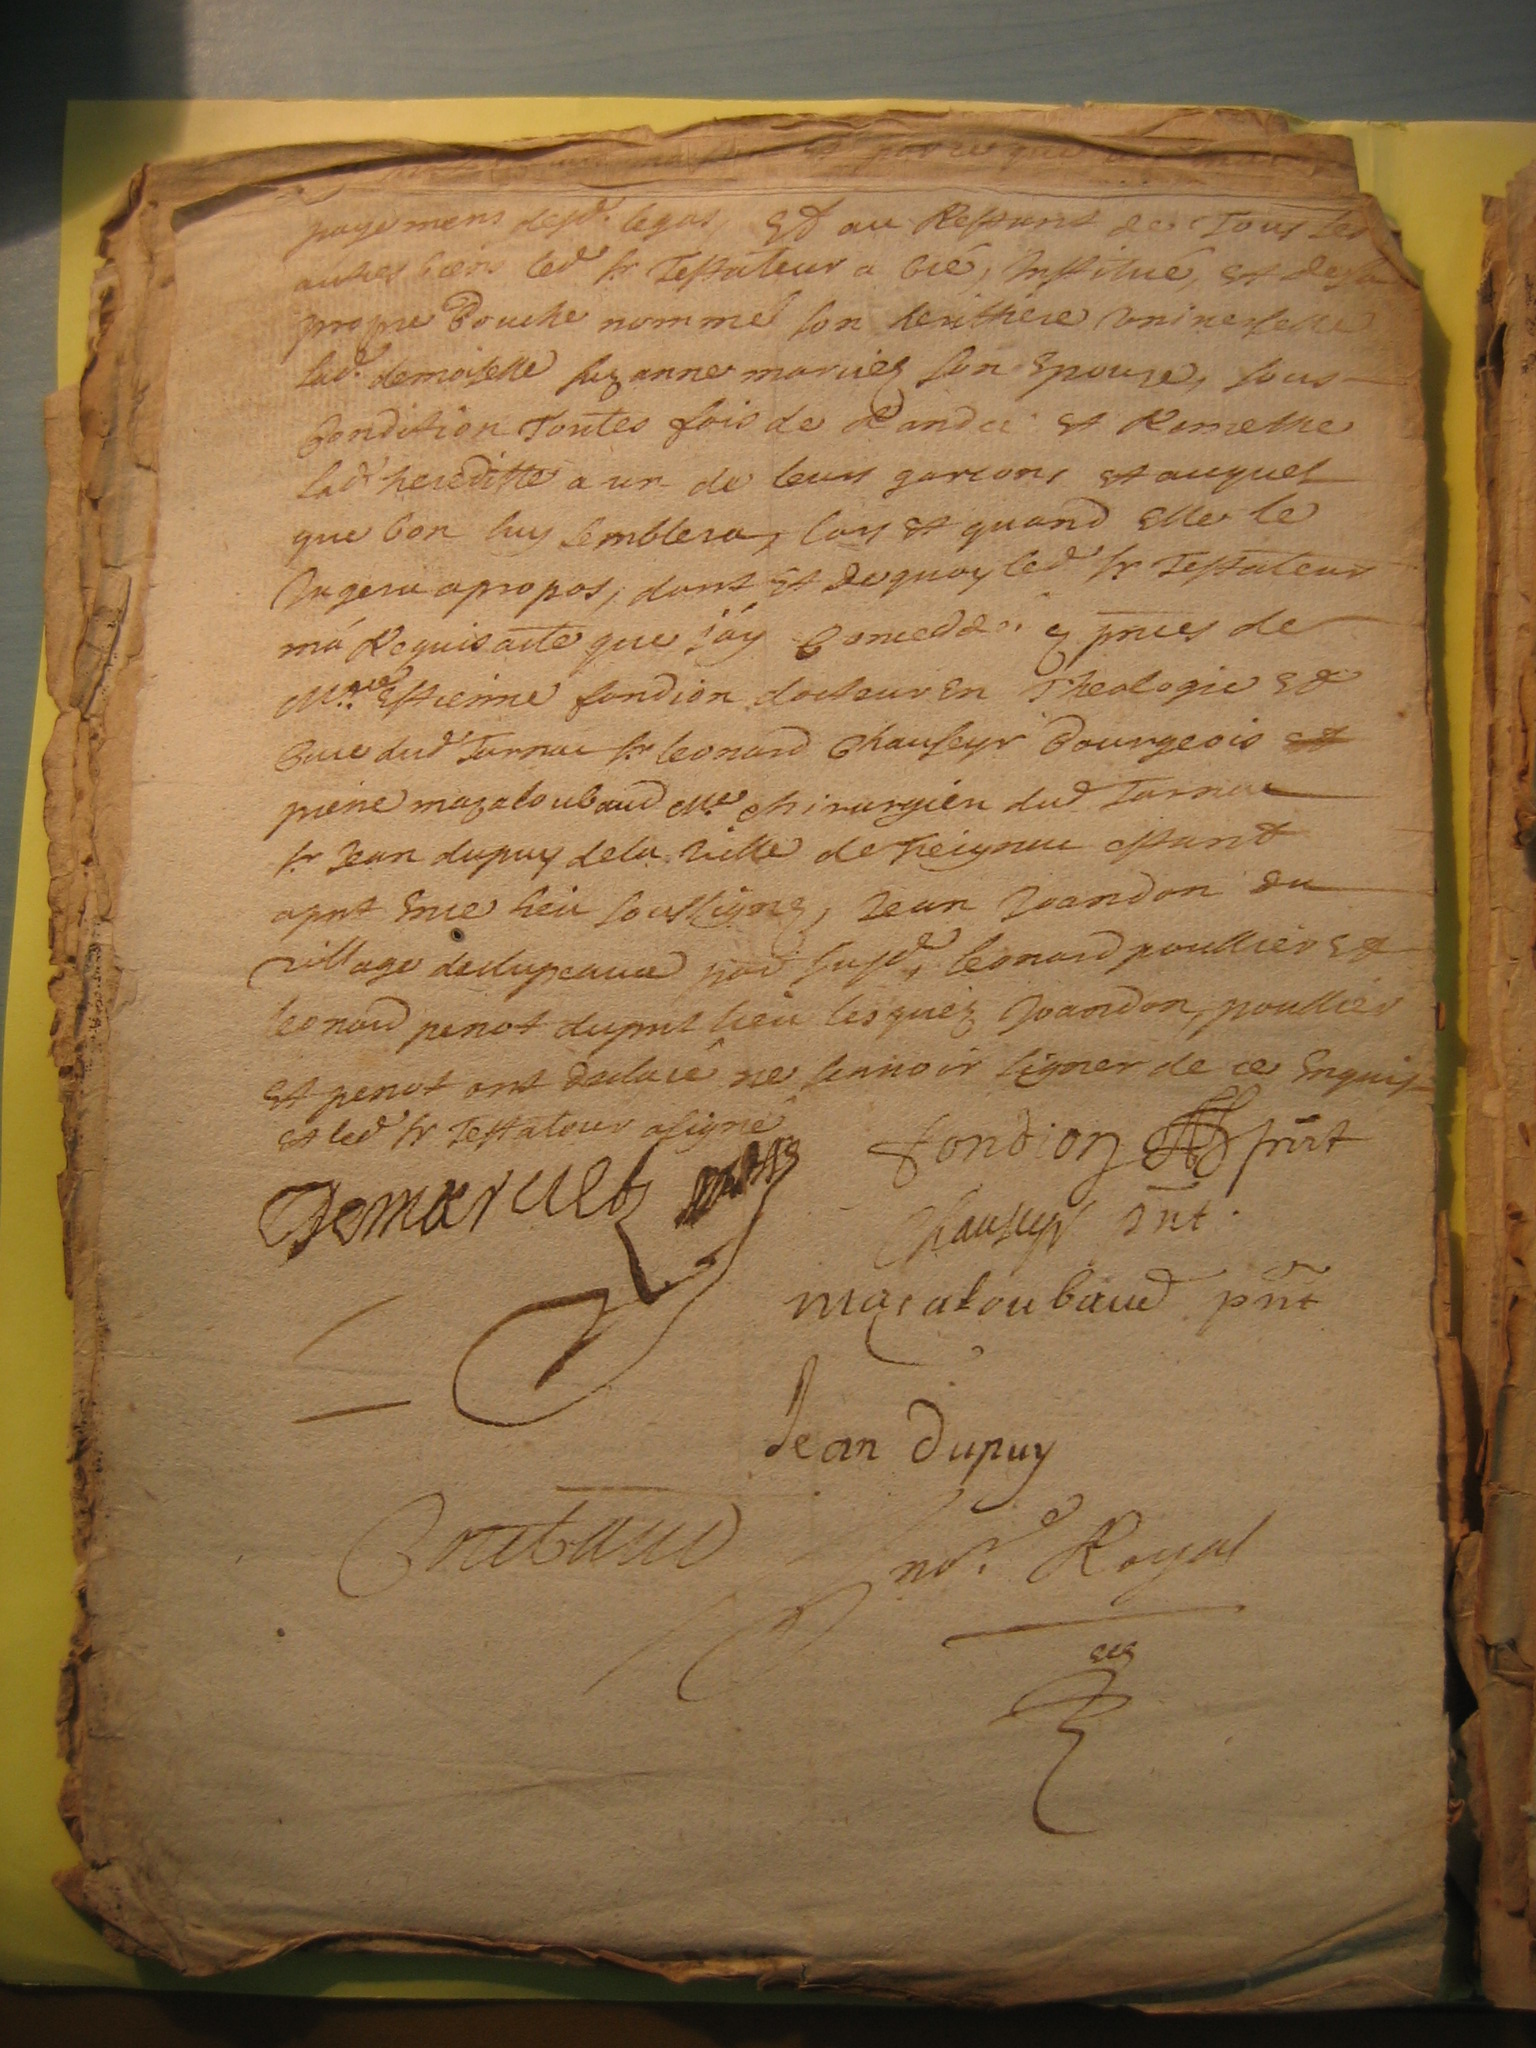 payemens desd. legas, Et au Restant de Tous ses
autres biens led. sr Testateur a créé, Institué, et de sa
propre bouche nommé son heritiere universelle
lad. demoiselle suzanne marciez son Epouze, sous
Condition Toutes fois de Randre et Remettre
lad. hereditte a un de leurs garcons et auquel
que bon luy semblera, lors et quand Elle le
Jugera apropos, dont Et dequoy led. sr Testateur
ma Requis acte que j'ay Conceddé es pnces de
Mre Estienne fondion docteur En Theologie Et
Curé dud Tarnac sr leonard Chauseyr Bourgeois et
pierre mazaloubaud Me chirurgien dud Tarnac
sr Jean dupuy de la Ville de Treignac estant
apnt En ce lieu soussignes, Jean Joandon du
village par susd, leonard poullier Et
leonard penot du pnt lieu lesquez Joandon, poullier
et penot ont declaré ne scavoir signer de ce Enquis
et led sr Testateur a signé
Demarciez
fondion pnt
Chauseyr pnt
mazaloubaud pnt
Jean Dupuy
Coutaud
nore Royal